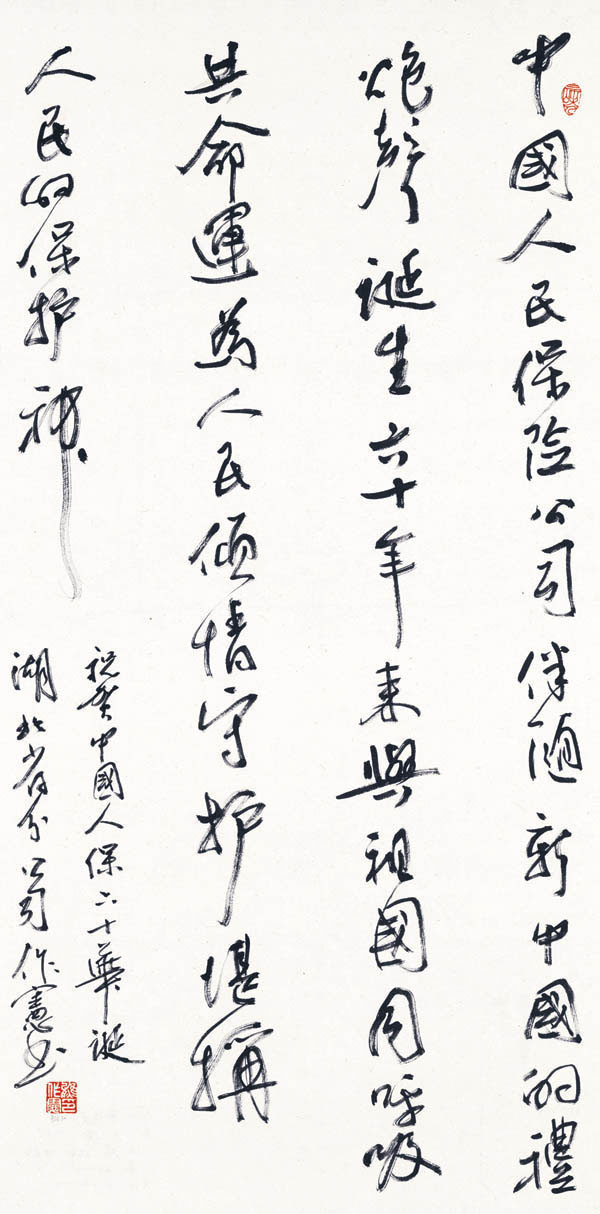 中國人民保险公司伴随新中國的禮
炮聲誕生六十年来與祖國同呼吸
共命運為人民傾情守护堪稱
人民的保护神
祝贺中國人保六十華誕
湖北省分公司作憲书